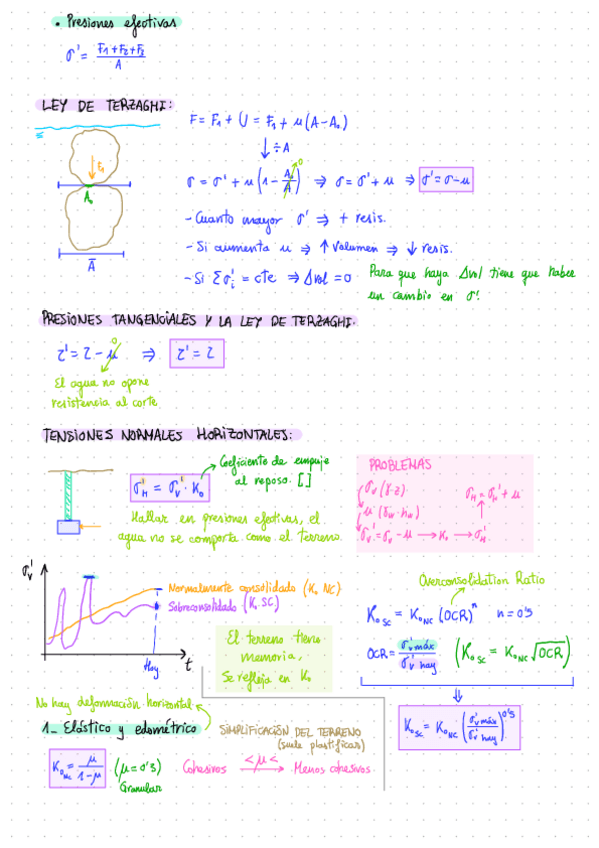 • Presiones efectivas
σ' = (F1+F2+F3)/A
LEY DE TERZAGHI:
F = F1 + U = F1 + μ(A-A0)
↓ ÷A
F1
A0
A̅
σ = σ' + μ(1 - A0/A) ⇒ σ = σ' + μ ⇒ σ' = σ-μ
0
- Cuanto mayor σ' ⇒ + resis.
- Si aumenta μ ⇒ ↑ volumen ⇒ ↓ resis.
- Si Σσ'i = cte ⇒ Δvol = 0
Para que haya Δvol tiene que haber
un cambio en σ'.
PRESIONES TANGENCIALES Y LA LEY DE TERZAGHI.
τ' = τ - μ ⇒ τ' = τ
0
El agua no opone
resistencia al corte
TENSIONES NORMALES HORIZONTALES:
σ'H = σ'v · K0
Coeficiente de empuje
al reposo. [ ]
Hallar en presiones efectivas, el
agua no se comporta como el terreno.
PROBLEMAS
σv (γ·z)
μ (γw·hw)
σ'v = σv - μ → K0 → σ'H
σH = σ'H + μ
σ'v
Normalmente consolidado (K0 NC)
Sobreconsolidado (K0 SC)
Hoy
t
El terreno tiene
memoria,
se refleja en K0
Overconsolidation Ratio
K0SC = K0NC (OCR)^n n = 0'5
OCR = σ'v máx / σ'v hoy (K0SC = K0NC √OCR)
K0SC = K0NC (σ'v máx / σ'v hoy)^0'5
No hay deformación horizontal
1_ Elástico y edométrico
SIMPLIFICACIÓN DEL TERRENO
(suele plastificar)
K0NC = μ/(1-μ) (μ = 0'5)
Granular
Cohesivos <μ< → Menos cohesivos